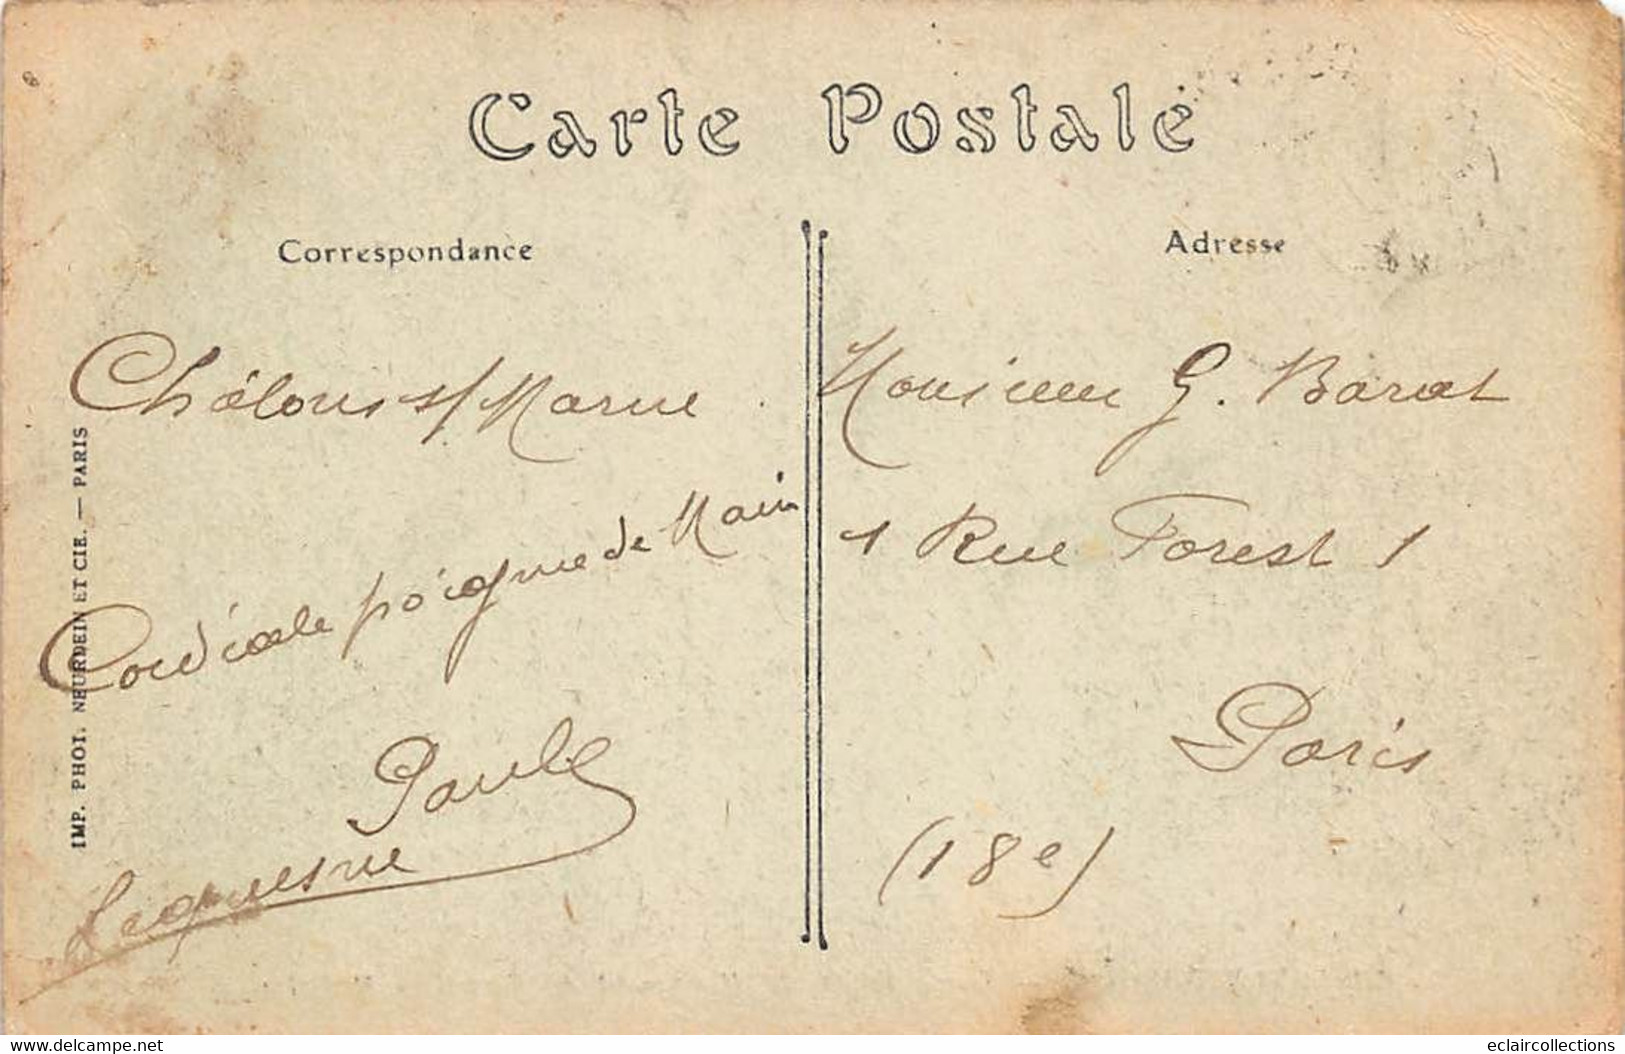 Carte Postale
Correspondance
Châlons s/Marne
Cordiale poignée de Main
Paul
Lequesne
IMP. PHOT. NEURDEIN ET CIE. — PARIS
Adresse
Monsieur G. Barat
1 Rue Forest 1
Paris
(18e)
www.delcampe.net
eclaircollections